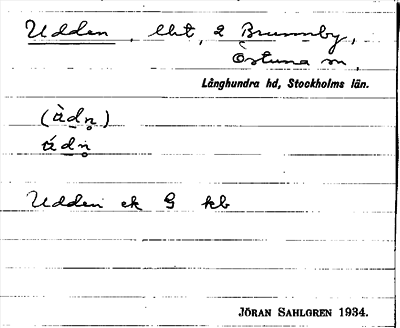 Udden, lht, 2 Brunnby,
Östuna sn,
Långhundra hd, Stockholms län.
(ùdn̥)
údn̥
Udden ek G kb
JÖRAN SAHLGREN 1934.